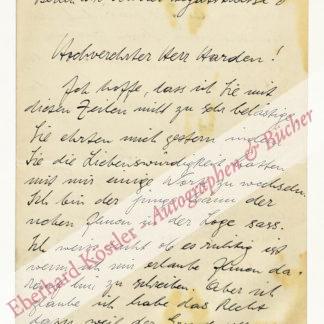 Hochverehrter Herr Harden!
Ich hoffe, dass ich Sie mit
diesen Zeilen nicht zu sehr belästige
Sie ehrten mich gestern
Sie die Liebenswürdigkeit hatten
mit mir einige Worte zu wechseln.
Ich bin der junge Mann der
neben Ihnen in der Loge sass.
Ich weiss nicht ob es richtig ist
wenn ich mir erlaube Ihnen da-
zu schreiben. Aber ich
glaube ich habe das Recht
dazu, weil der
Eberhard Köstler Autographen & Bücher